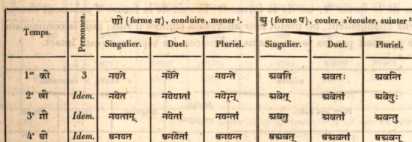 Temps.
Personnes.
णी (forme म), conduire, mener¹.
स्रु (forme प), couler, s'écouler, suinter
Singulier. Duel. Pluriel. Singulier. Duel. Pluriel.
1ʳᵉ की 3 नयते नयेते नयन्ते स्रवति स्रवतः स्रवन्ति
2ᵉ खी Idem. नयेत नयेयातां नयेरन् स्रवेत् स्रवेतां स्रवेयुः
3ᵉ गी Idem. नयताम् नयेतां नयन्तां स्रवतु स्रवतां स्रवन्तु
4ᵉ घी Idem. अनयत अनयेतां अनयन्त अस्रवत् अस्रवतां अस्रवन्